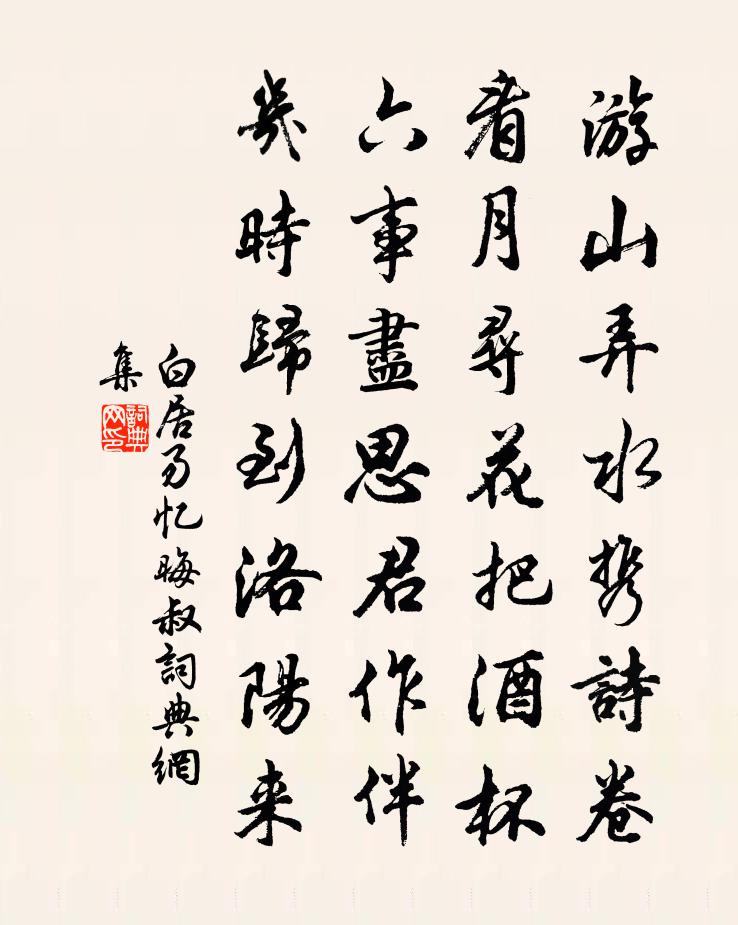 游山弄水携詩卷
看月尋花把酒杯
六事盡思君作伴
幾時歸到洛陽来
白居易忆晦叔詞典網
集
詞典网印